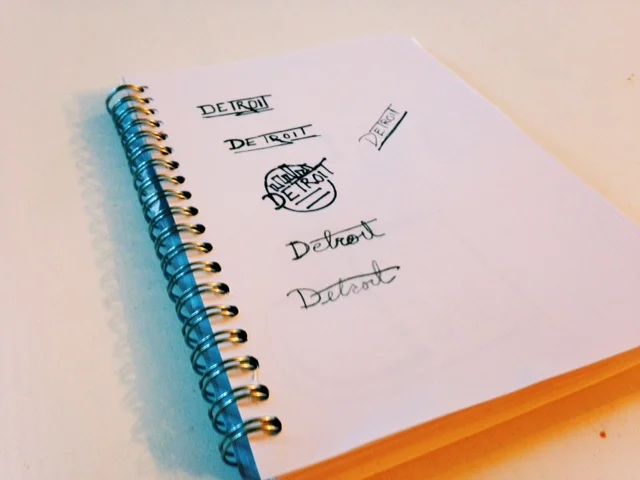 DETROIT
DETROIT
DETROIT
DETROIT
Detroit
Detroit